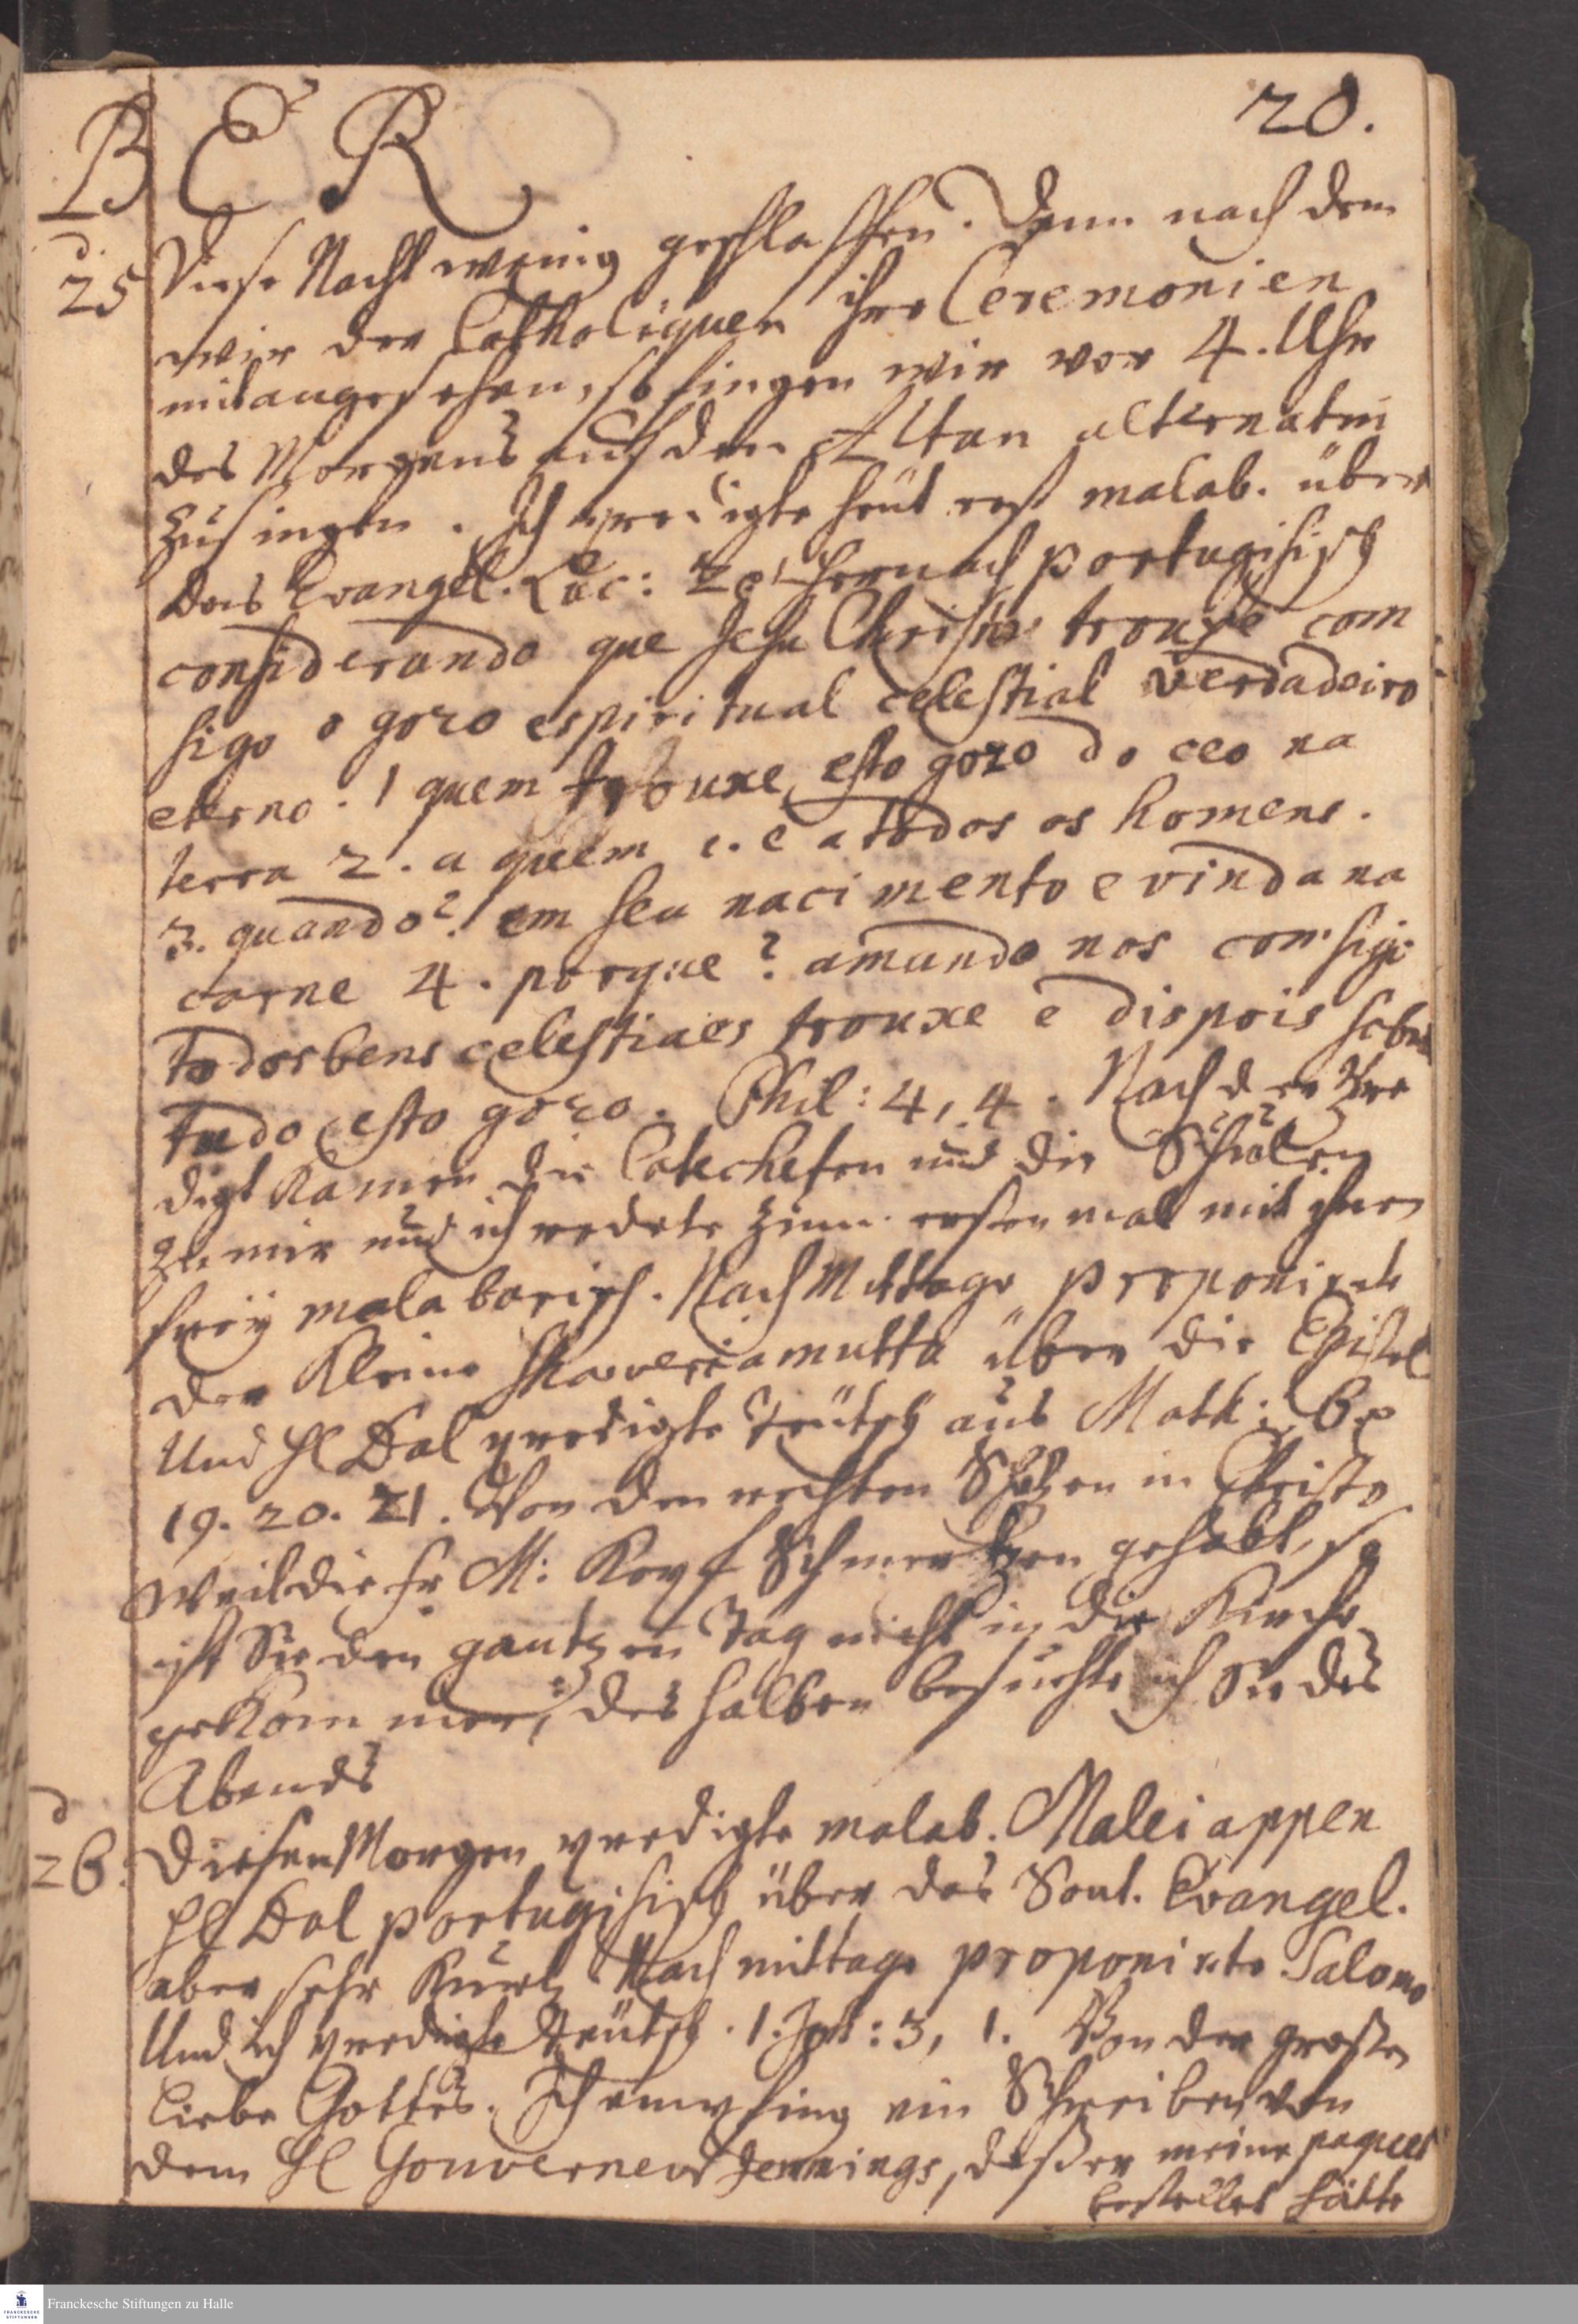 BER
20.
d.
25 Diese Nacht wenig geschlaffen. Denn nach dem
wir der Catholiquen ihre Ceremonien
mitangesehen, so fingen wir vor 4. Uhr
des Morgens auf dem Altan alternatim
zu singen. Ich predigte heut erst malab. über
das Evangel. Luc: 2. hernach portugisisch
considerando que Jesu Christo trouxe com
sigo o gozo espiritual celestial verdadeiro
eterno. 1 quem trouxe esto gozo do ceo na
terra 2. a quem i. e a todos os homens.
3. quando? em seu nacimento e vinda na
carne 4. porque? amando nos com sigo
todos bens celestiaes trouxe e dispois sobre
tudo esto gozo. Phil: 4, 4. Nach der Pre
digt kamen die Catecheten und die Schüler
zu mir und ich redete zum ersten mal mit ihnen
frey malabarisch. Nach Mittage proponirte
der kleine Shaverimuttu über die Epistel
Und H Dal predigte teütsch aus Matth: 6.
19. 20. 21. Von den rechten Schätzen in Christo
Weil die Fr M: Kopf Schmertzen gehabt, so
ist Sie den gantzen Tag nicht in die Kirche
gekommen, des halben besuchte ich Sie des
Abends
d
26. Diesen Morgen predigte malab. Maleiappen
H Dal portugisisch über das Sont. Evangel.
aber sehr kurtz Nachmittage proponirte Salomo
Und ich predigte teütsch. 1. Joh: 3, 1. Von der grossen
Liebe Gottes. Ich empfing ein Schreiben von
dem H Gouverneur Jennings, daß er meine paquet
bestellet hätte
FRANCKESCHE STIFTUNGEN
Franckesche Stiftungen zu Halle